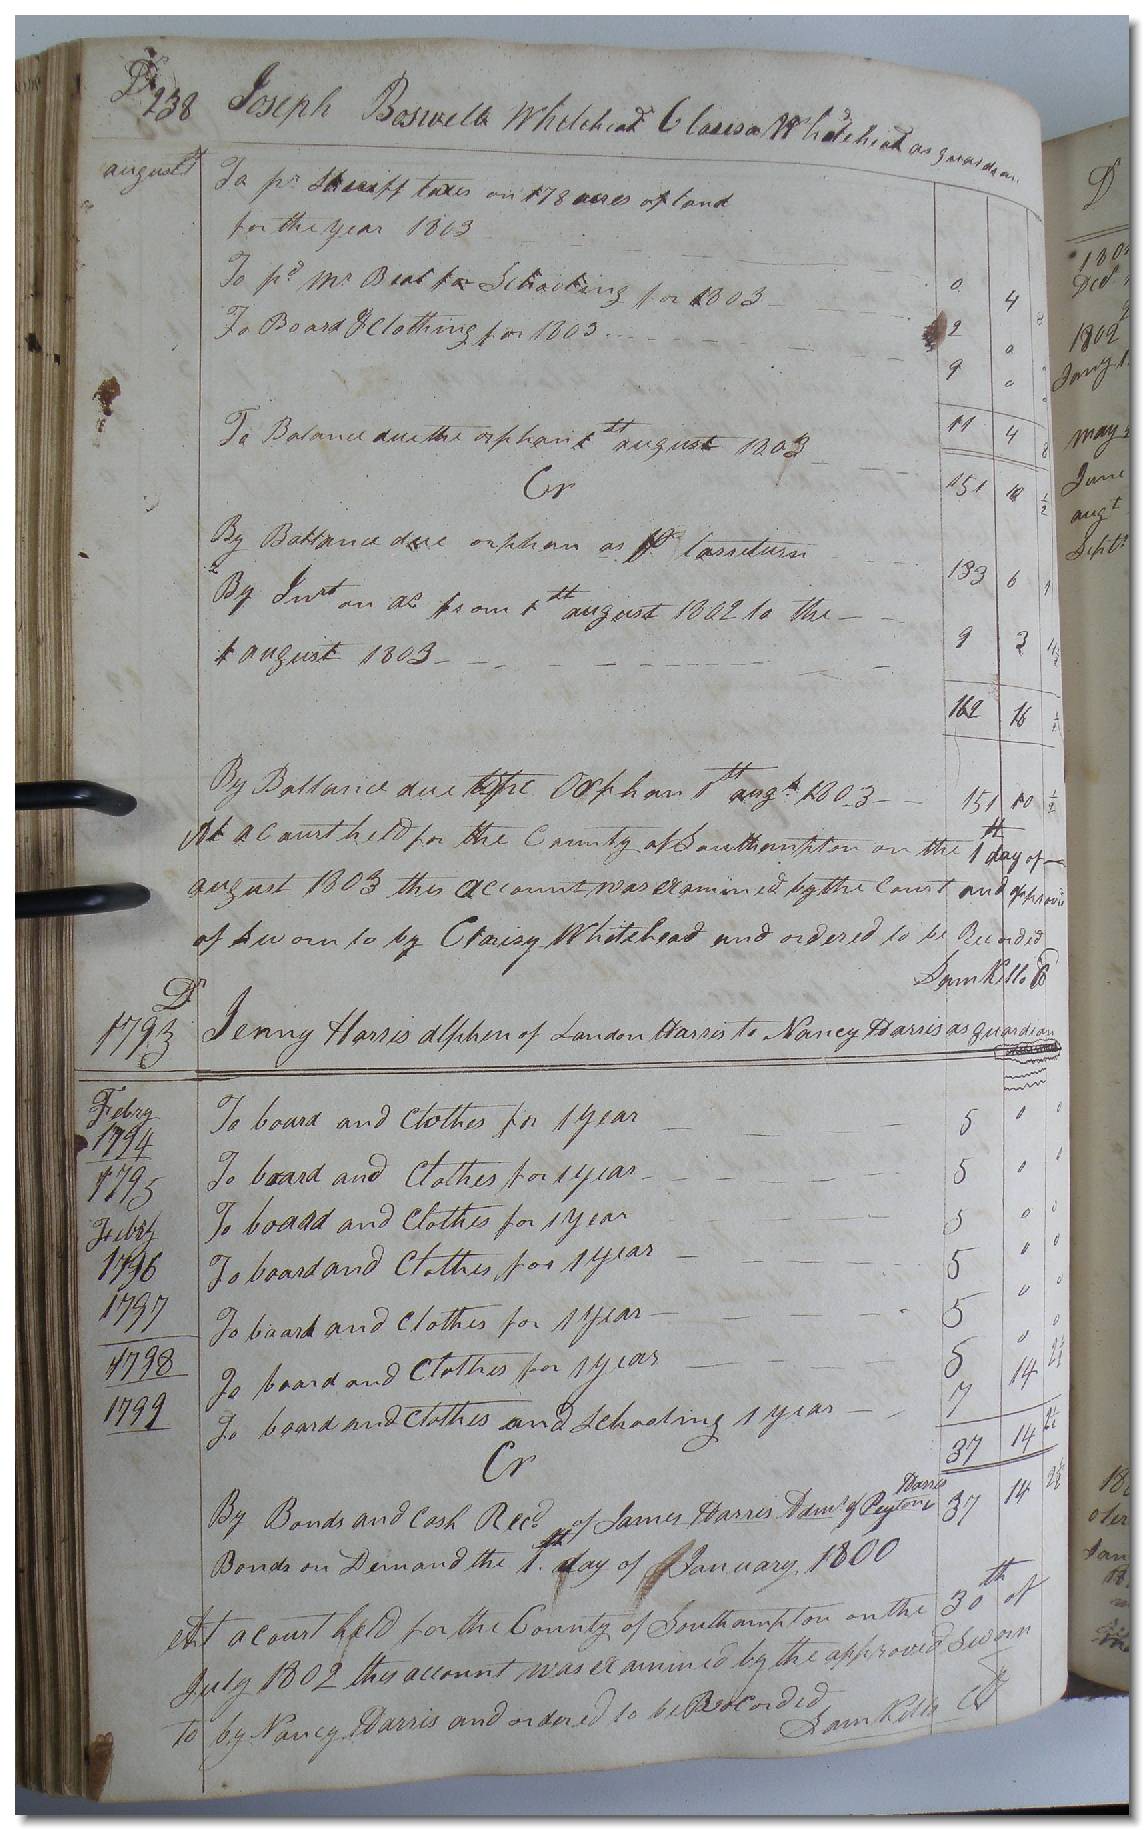 Dr
238 Joseph Boswell Whitehead Clarisa Whitehead as guardian
august To pd Sheriff taxes on 178 acres of land
for the year 1803 0 4 8
To pd Mr Beal for Schooling for 1803 2 0 0
To Board & Clothing for 1803 9 0 0
11 4 8
To Balance due the orphan 1th august 1803 151 10 1/2
Cr
By Ballance due orphan as pr last return 133 6
By Intrt on ac from 1th august 1802 to the
1 august 1803 9 3
162 16
By Ballance due the Orphan 1th augt 1803 151 10 1/2
At a Court held for the County of Southampton on the 1th day of
august 1803 this account was examined by the Court and approved
of Sworn to by Clarisy Whitehead and ordered to be Recorded
Sam Kello
Dr
1793 Jenny Harris alphen of Landon Harris to Nancy Harris as guardian
Febry
1794 To board and Clothes for 1 year 5 0 0
1795 To board and Clothes for 1 year 5 0 0
Febry To board and Clothes for 1 year 5 0 0
1796 To board and Clothes for 1 year 5 0 0
1797 To board and Clothes for 1 year 5 0 0
1798 To board and Clothes for 1 year 5 0 0
1799 To board and Clothes and schooling 1 year 7 14 2 1/2
37 14 2 1/2
Cr
By Bonds and Cash Recd of James Harris Admr of Peyton Harris 37 14 2 1/2
Bonds on Demand the 1th day of January 1800
At a court held for the County of Southampton on the 30th of
July 1802 this account was examined by the approved Sworn
to by Nancy Harris and ordered to be Recorded
Sam Kello
D
1802
may
June
augt
Septr